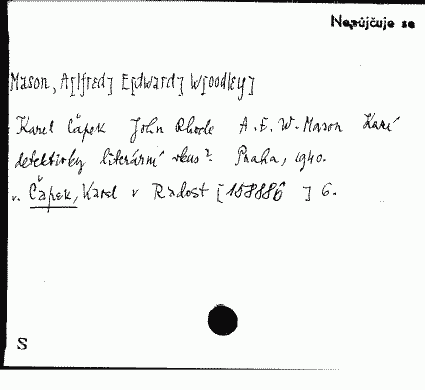 Nepůjčuje se
Mason, A[lfred] E[dward] W[oodley]
Karel Čapek John Rhode A. E. W. Mason Kazí
detektivky literární vkus? Praha, 1940.
v. Čapek, Karel v Radost [158886 ] 6.
S